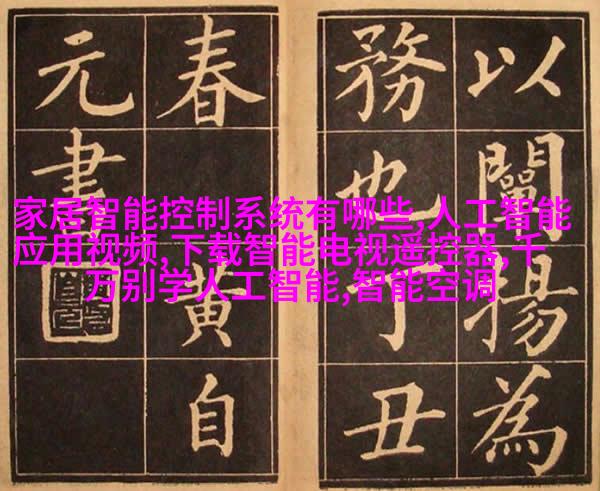 以闡揚為
務也丁丑
春黃自
元書
家居智能控制系统有哪些,人工智能
应用视频,下载智能电视遥控器,千
万别学人工智能,智能空调